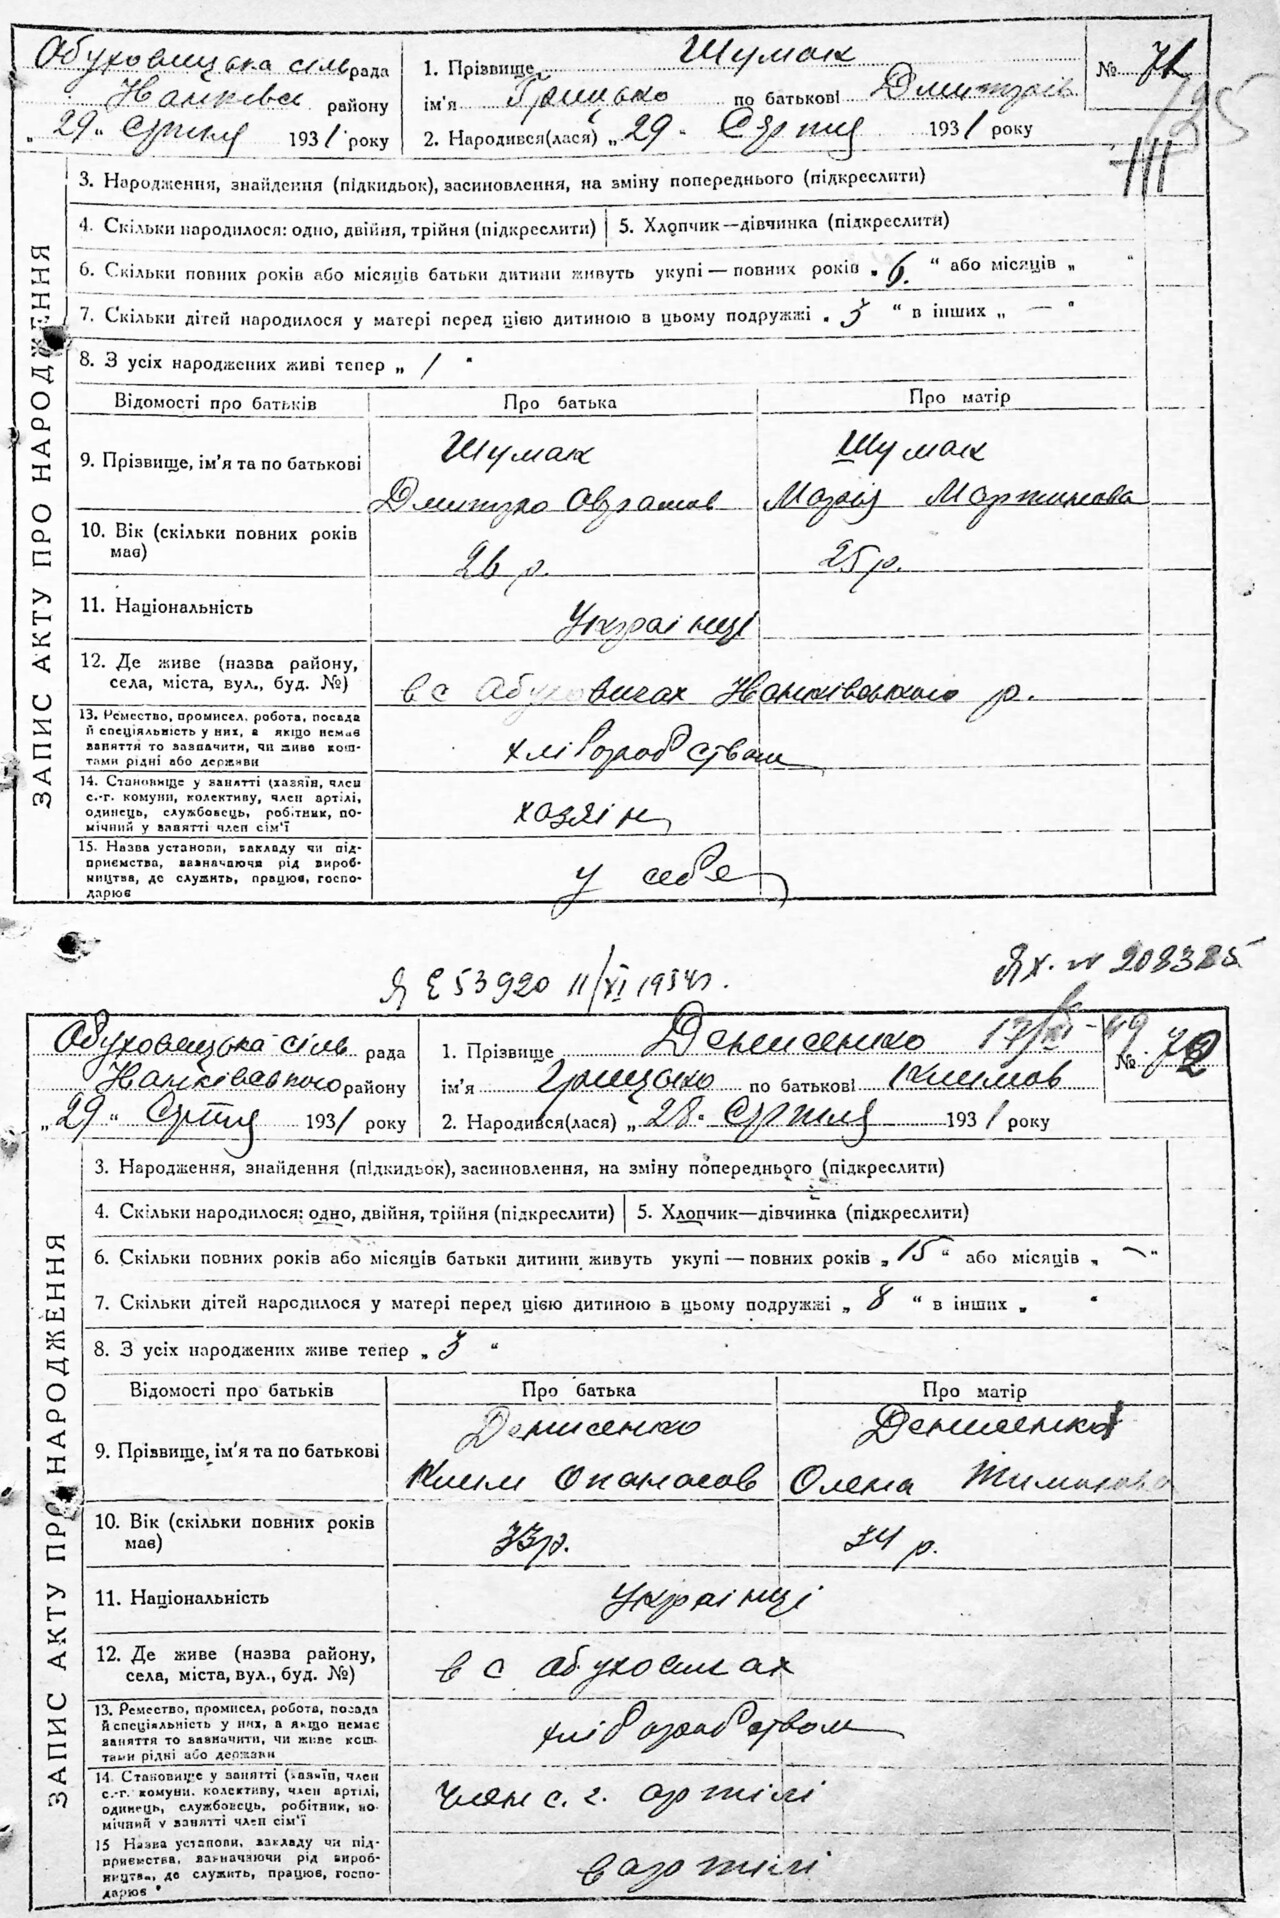 Обуховицька сільрада
Іванківськ району
„ 29 „ Серпня 1931 року
1. Прізвище Шумак
ім'я Грицько по батькові Дмитрів
2. Народився(лася) „ 29 „ Серпня 1931 року
№ 71
III
3. Народження, знайдення (підкидьок), засиновлення, на зміну попереднього (підкреслити)
4. Скільки народилося: одно, двійня, трійня (підкреслити) 5. Хлопчик—дівчинка (підкреслити)
6. Скільки повних років або місяців батьки дитини живуть укупі — повних років „ 6. “ або місяців „ “
7. Скільки дітей народилося у матері перед цією дитиною в цьому подружжі „ 3 “ в інших „ — “
8. З усіх народжених живі тепер „ 1 “
ЗАПИС АКТУ ПРО НАРОДЖЕННЯ
Відомості про батьків Про батька Про матір
9. Прізвище, ім'я та по батькові
Шумак Шумак
Дмитро Аврамов Марія Мартинова
10. Вік (скільки повних років має)
26 р. 25 р.
11. Національність
Українці
12. Де живе (назва району, села, міста, вул., буд. №)
в с Обуховичах Іванківського р.
13. Ремество, промисел, робота, посада й спеціяльність у них, а якщо немає заняття то зазначити, чи живе коштами рідні або держави
хліборобством
14. Становище у занятті (хазяїн, член с.-г. комуни, колективу, член артілі, одинець, службовець, робітник, помічний у занятті член сім'ї
хазяїн
15. Назва установи, закладу чи підприємства, зазначаючи рід виробництва, де служить, працює, господарює
у себе
Я Е 53920 11/XI 1954 г.
Я Х. № 208385
Обуховицька сіль рада
Іванківського району
„ 29 „ Серпня 1931 року
1. Прізвище Денисенко
ім'я Грицько по батькові Климов
2. Народився(лася) „ 28 „ Серпня 1931 року
№ 72
3. Народження, знайдення (підкидьок), засиновлення, на зміну попереднього (підкреслити)
4. Скільки народилося: одно, двійня, трійня (підкреслити) 5. Хлопчик—дівчинка (підкреслити)
6. Скільки повних років або місяців батьки дитини живуть укупі — повних років „ 15 “ або місяців „ — “
7. Скільки дітей народилося у матері перед цією дитиною в цьому подружжі „ 8 “ в інших „ “
8. З усіх народжених живе тепер „ 3 “
ЗАПИС АКТУ ПРО НАРОДЖЕННЯ
Відомості про батьків Про батька Про матір
9. Прізвище, ім'я та по батькові
Денисенко Денисенко
Клим Опанасов Олена
10. Вік (скільки повних років має)
33 р. 34 р.
11. Національність
Українці
12. Де живе (назва району, села, міста, вул., буд. №)
в с Обуховичах
13. Ремество, промисел, робота, посада й спеціяльність у них, а якщо немає заняття то зазначити, чи живе коштами рідні або держави
хліборобством
14. Становище у занятті (хазяїн, член с.-г. комуни. колективу, член артілі, одинець, службовець, робітник, помічний у занятті член сім'ї
член с. г. артілі
15 Назва установи, закладу чи підприємства, зазначаючи рід виробництва, де служить, працює, господарює
в артілі